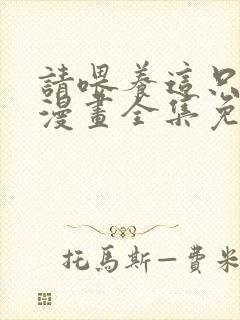 請喂養這只
漫畫全集免
托馬斯—費米